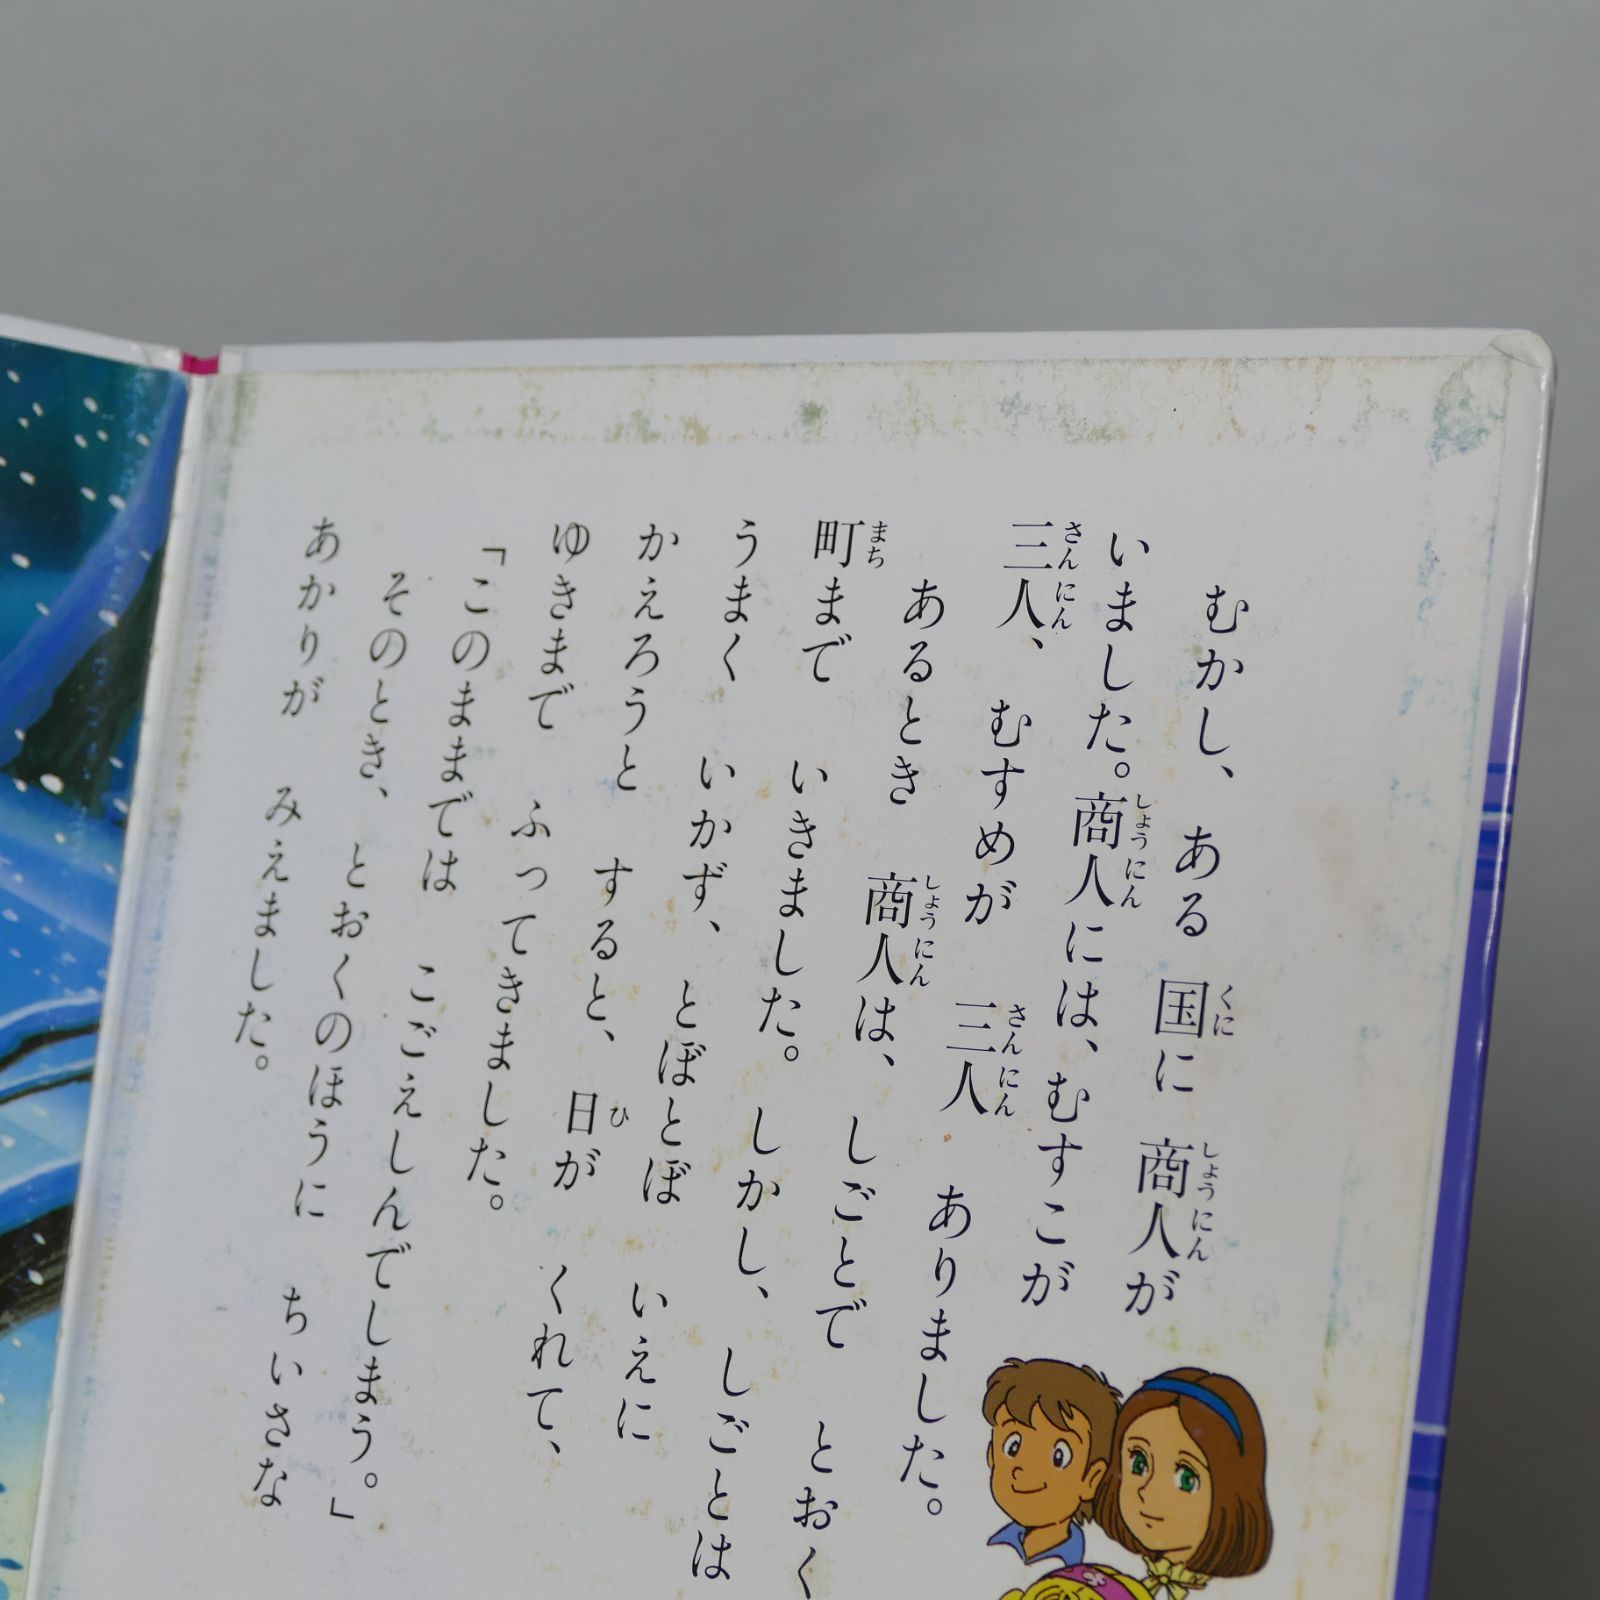 むかし、 ある 国に 商人が
いました。商人には、むすこが
三人、 むすめが 三人 ありました。
あるとき 商人は、 しごとで とおく
町まで いきました。 しかし、 しごとは
うまく いかず、 とぼとぼ いえに
かえろうと すると、 日が くれて、
ゆきまで ふってきました。
「このままでは こごえしんでしまう。」
そのとき、 とおくのほうに ちいさな
あかりが みえました。